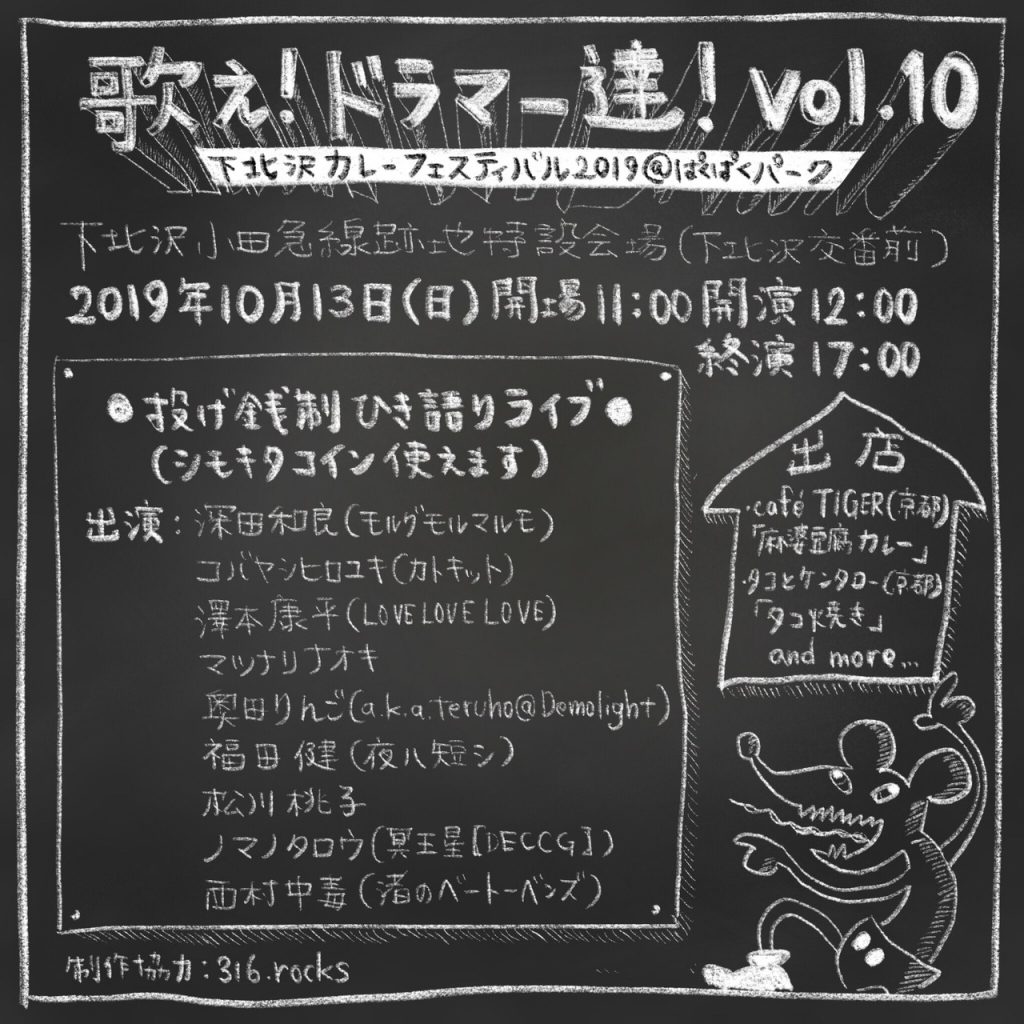 歌え!ドラマー達! vol.10
下北沢カレーフェスティバル2019@ぱくぱくパーク
下北沢小田急線跡地特設会場(下北沢交番前)
2019年10月13日(日)開場11:00 開演12:00
終演17:00
●投げ銭制ひき語りライブ●
(シモキタコイン使えます)
出演:深田和良(モルグモルマルモ)
コバヤシヒロユキ(カトキット)
澤本康平(LOVE LOVE LOVE)
マツナリナオキ
奥田りんご(a.k.a.teruho@Demolight)
福田健(夜ハ短シ)
松川桃子
ノマノタロウ(冥王星〔DECCG〕)
西村中毒(渚のベートーベンズ)
出店
・café TIGER(京都)
「麻婆豆腐カレー」
・タコとケンタロー(京都)
「タコ焼き」
and more...
制作協力:316.rocks